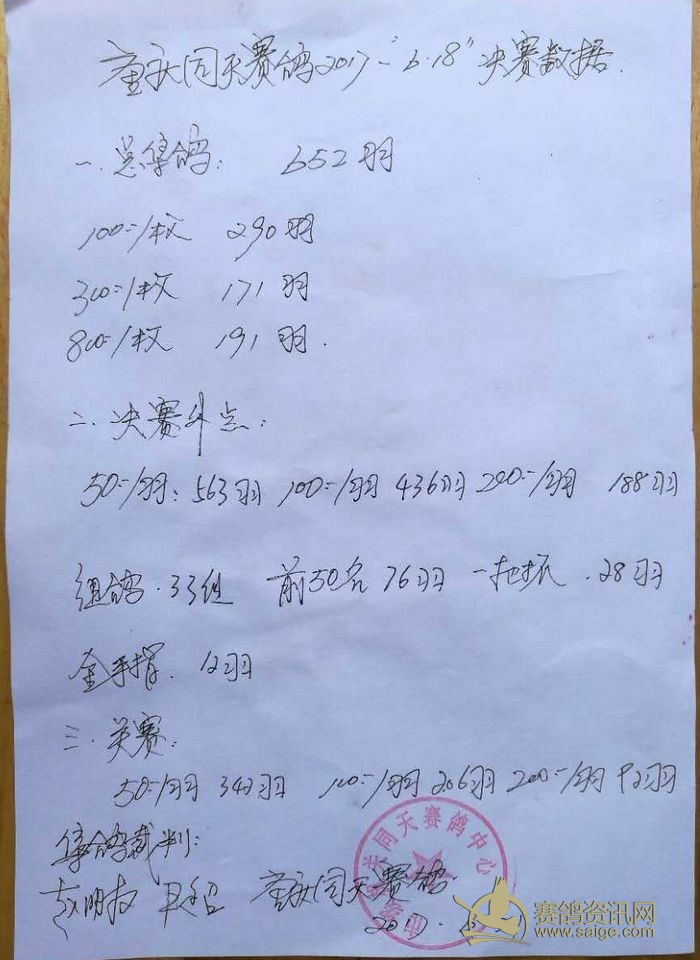 重庆同天赛鸽2017-"6·18"决赛数据.
一.总集鸽: 652羽
100=/枚 290羽
300=/枚 171羽
800=/枚 191羽.
二.决赛外点:
50=/羽: 563羽 100=/羽 436羽 200=/羽 188羽
组鸽.33组 前50名 76羽 一把抓.28羽
金手指. 12羽
三.关赛:
50=/羽 342羽 100=/羽 206羽 200=/羽 92羽
集鸽裁判:
赵明友 重庆同天赛鸽
2017.6.
同天赛鸽中心
赛鸽资讯网
www.saige.com